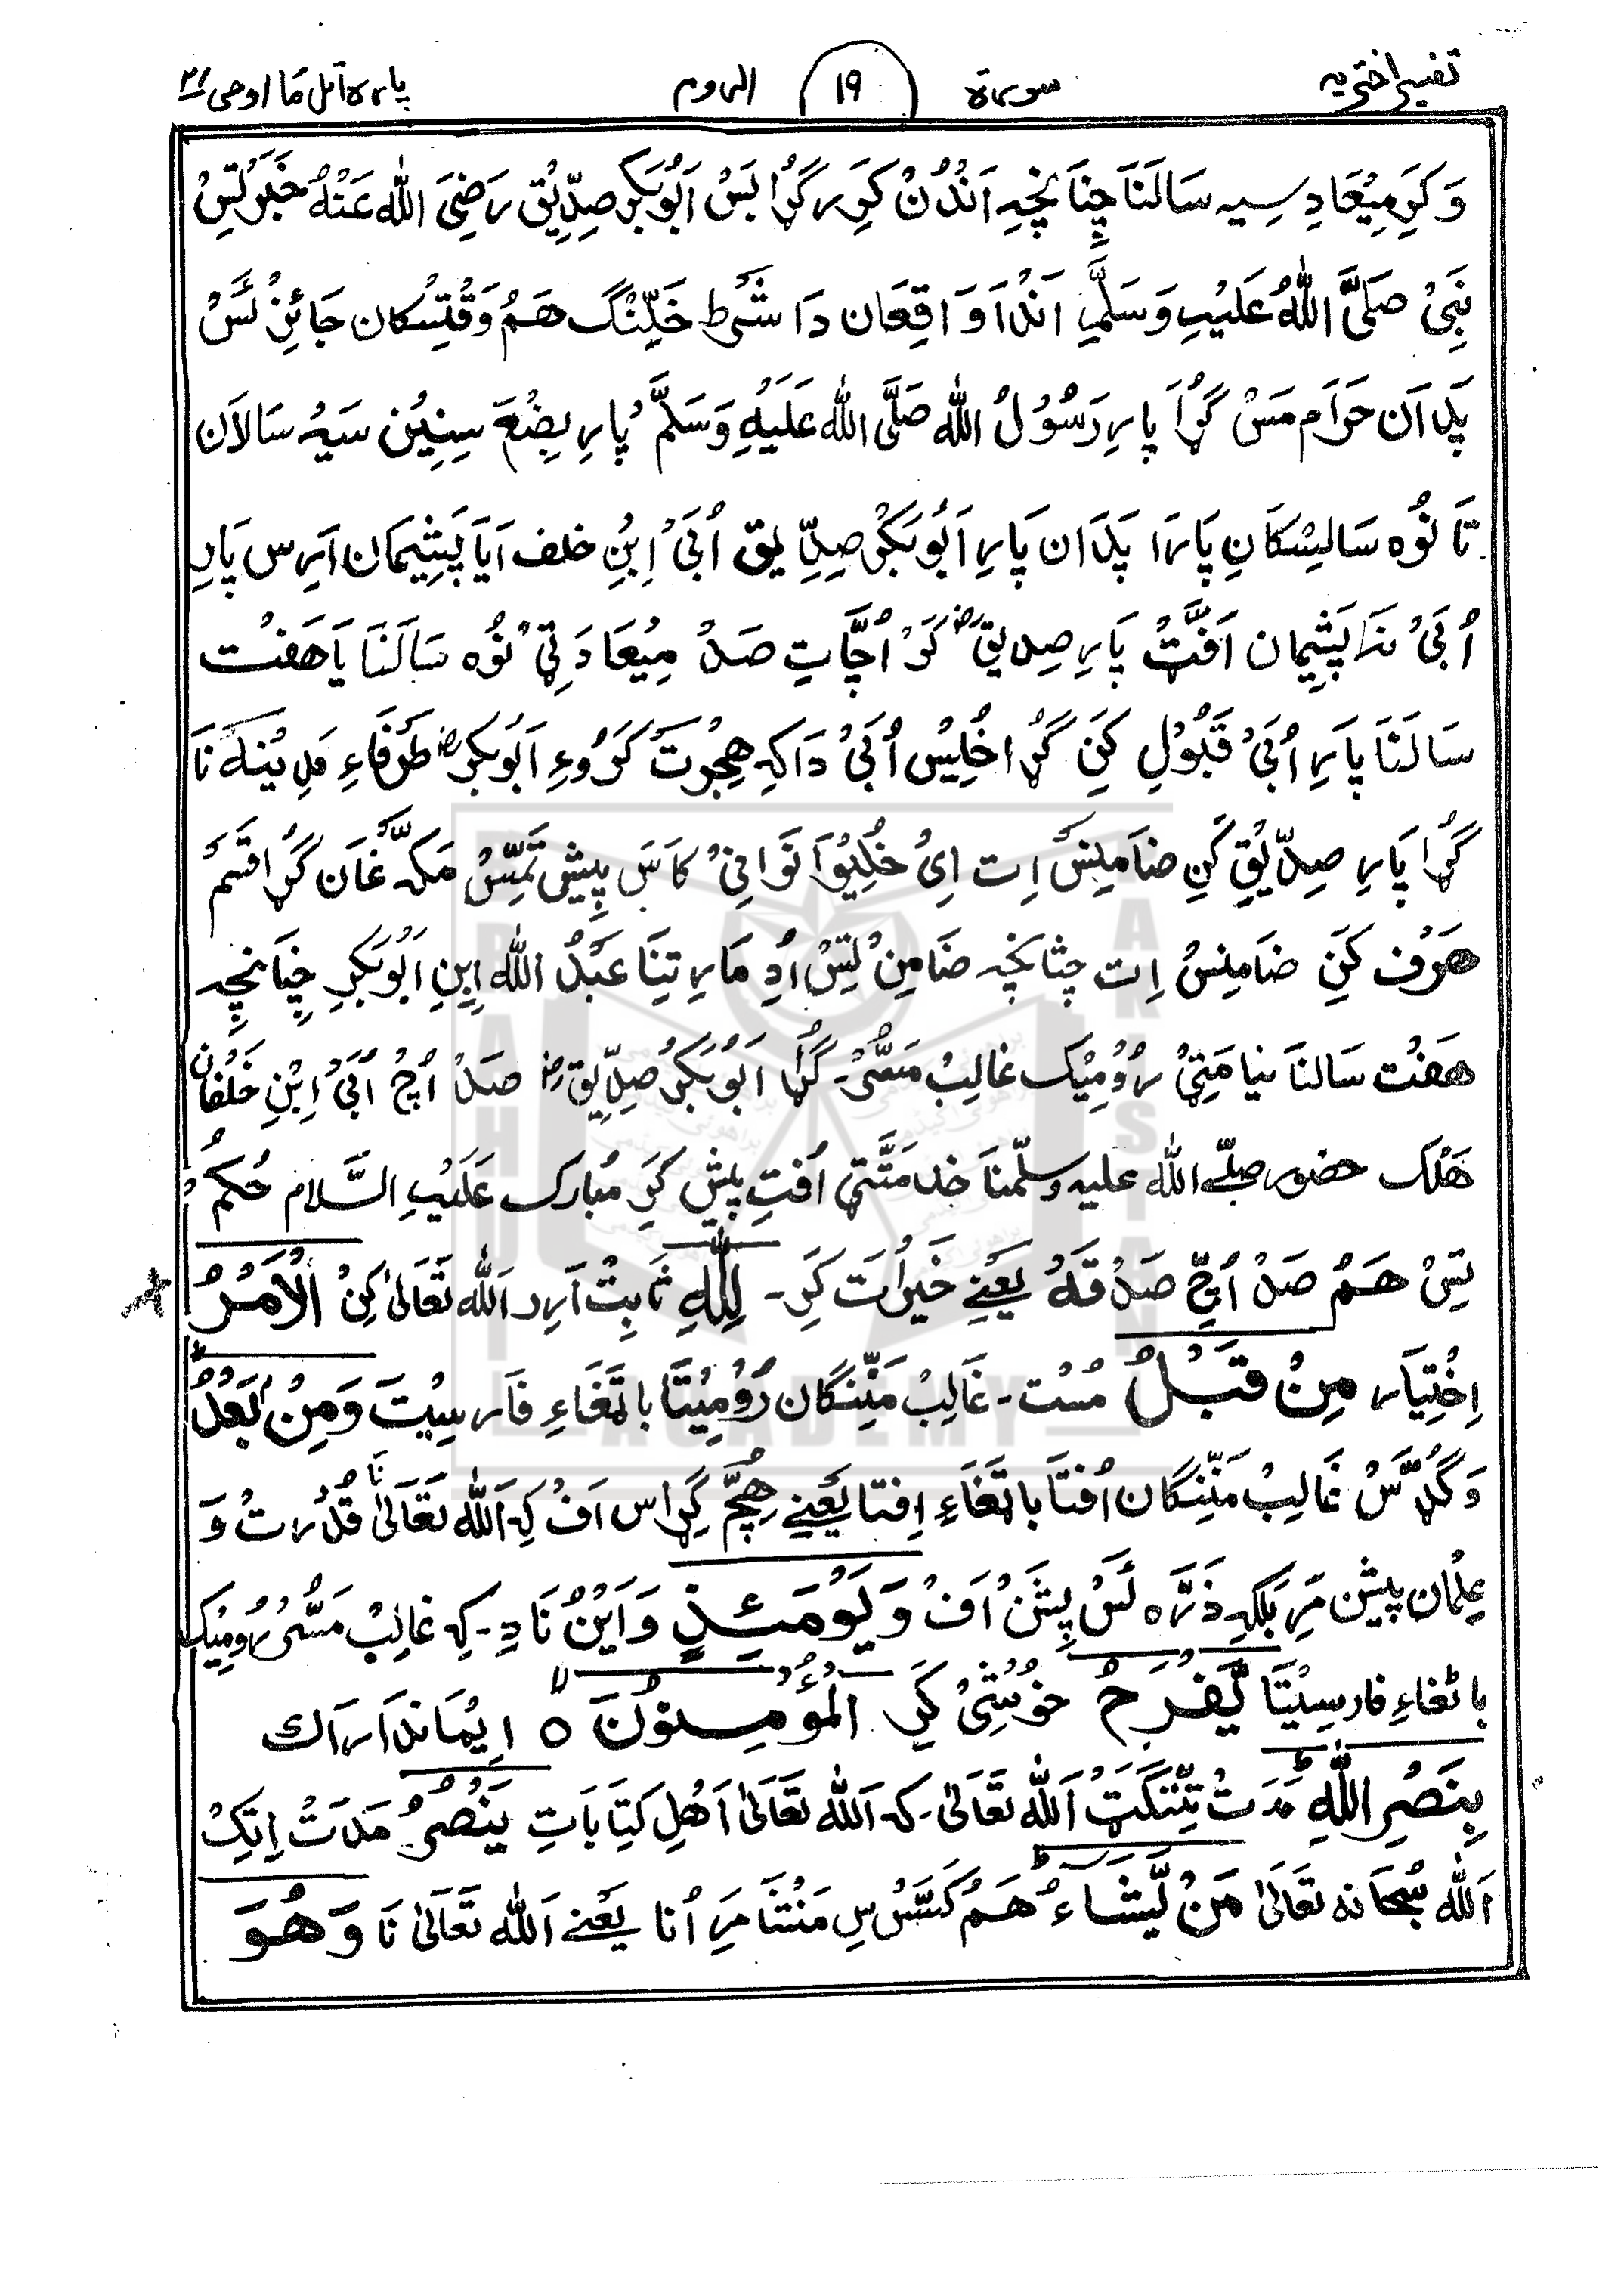 تفسیر اختریہ سورۃ ۱۹ الروم پارہ اتل ما اوحی ۲۱
وَکَرِ مِیْعَادِ سِیہ سَالَنَا چِنَانچِہِ اَنْدُنْ کَرِر گُڑا بَسْ اَبُوبَکر صِدِّیْق رَضِیَ اللّٰہ عَنْہُ خَبَر تِسْ
نَبِیْ صَلَّی اللّٰہُ عَلَیْہِ وَسَلَّمِ اَنْدَا وَاقِعَان دَا شَرْط خَلِّنْگ هَمُ وَقْتِسْکان جَائِزْ ئَسْ
پَدَاَن حَرَام مَسْ گُڑا پارِ رَسُوْلُ اللّٰہ صَلَّی اللّٰہ عَلَیْہِ وَسَلَّمْ پارِ بِضْعَ سِنِیْن سَیْہ سَالَان
تَا نُوْہ سَالِسْکَانِ پَارَا پَدَان پَارِ اَبُوبَکْر صِدِّیق اُبَیْ اِبْنِ خلف اَیَا پَشِیْمَان اَرِس پَارِ
اُبَیْ نَہ پَشِیْمان اَفَّتْ پَارِ صِدیقؓ کَرْ اُچَّاتِ صَدْ مِیْعَادَٹِیْ نُوْہ سَالَنَا یَا هَفْت
سَالَنَا پارِ اُبَیْ قَبُوْلِ کَنَ گُڑا خُلِیْس اُبَیْ دَاکِہ هِجْرَت کَرُوءِ اَبُوبکرؓ طَرَفَاءِ مَدِیْنَہ نَا
گُڑا پَارِ صِدِّیْقِ کَنِ ضَامِنِسْ اِت اِیْ خُلِیْوَا نَوَا نِیْ کَاسَ پِیْش تَمِّسْ مَکَّہ غَان گُڑا قَسَمْ
هَرْف کَنَ ضَامِنِسْ اِت چنانچہ ضَامِنْ تِسْ اُدِ مَارِ تِنَا عَبْدُ اللّٰہ اِبِنِ اَبُوبَکْرِ چِنَانچِہ
هَفْت سَالنَا نیامَٹِیْ رُوْمِیْک غالِبْ مَسُّرْ۔ گُڑا اَبُوبَکْر صِدِّیقؓ صَدْ اُچْ اُبَیْ اِبْنِ خَلْفَان
هَلْک حضور صلّے اللّٰہ علیہ وسلّمنَا خدمَتَّٹِی اُفتِ پیش کَرِ مُبارک عَلَیْہِ السَّلام حُکمْ
تِسْ هَمُ صَدْ اُچِّ صَدْقَہْ یعْنے خَیْرَات کَرِ۔ لِلّٰہِ ثَابِتْ اَرِد اَللّٰہ تَعَالیٰ کِنْ الْاَمْرُ
اِخْتِیَار مِنْ قَبْلُ مُسْت۔ غَالِبْ مَنِّنْگان رُوْمِیْتَا باتْغَاءِ فَارسِیْت وَمِنْ بَعْدُ
وَ گُڈَسْ غَالِبْ مَنِّنگان اُفْتَا باتْغَاءِ اِفتا یَعْنِے هِچّ گِڑاس اَفْ کِہ اَللّٰہ تَعَالیٰ نَا قُدْرَتْ وَ
عِلْمَان پیشْن مَرِ بَلکِہ ذَرَّہ ئَسْ پِشَنْ اَفْ وَیَوْمَئِذٍ وَ اَیْنُ نَادِ۔ کِہ غَالِبْ مَسُّرْ رُوْمِیْک
باتْغَاءِ فارسِیْتَا یَّفْرَحُ خُوْشِیْ کَرِ الْمُؤْمِنُوْنَ ۝ اِیْمَاندَارَاک
بِنَصْرِ اللّٰہِ مَدَتْ تِنِّنْگَٹْ اَللّٰہ تَعَالیٰ۔ کہ اَللّٰہ تَعَالیٰ اَهْلِ کِتَابَاتِ یَنْصُرُ مَدَتْ اِتِکْ
اَللّٰہ سُبْحَانہ تعَالیٰ مَنْ یَّشَاءُ هَمُ کَسَّسْ سِ مَنْشَا مَرِ اُنا یَعْنے اَللّٰہ تَعَالیٰ نَا وَهُوَ
BRAHUI
ACADEMY
PAKISTAN